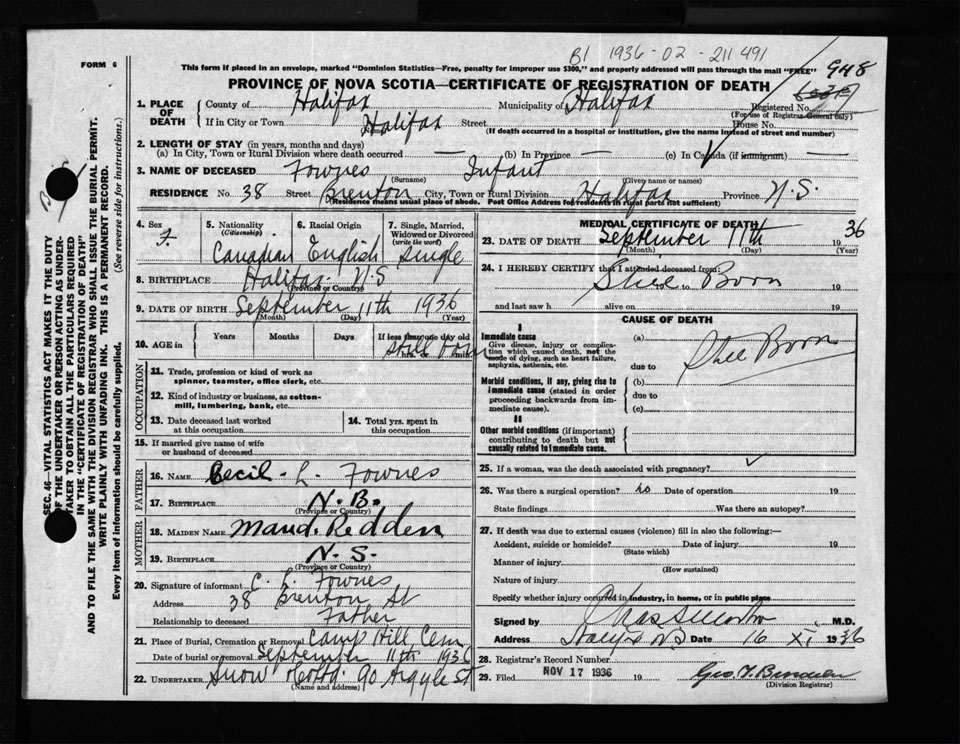 B1 1936 - 02 - 211 491
FORM 6
This form if placed in an envelope, marked "Dominion Statistics—Free, penalty for improper use $300," and properly addressed will pass through the mail "FREE"
948
PROVINCE OF NOVA SCOTIA—CERTIFICATE OF REGISTRATION OF DEATH
1. PLACE OF DEATH County of Halifax Municipality of Halifax Registered No.
(For use of Registrar General only)
If in City or Town Halifax Street House No.
(Name)
(If death occurred in a hospital or institution, give the name instead of street and number)
2. LENGTH OF STAY (in years, months and days)
(a) In City, Town or Rural Division where death occurred — (b) In Province — (c) In Canada (if immigrant) —
3. NAME OF DECEASED Fownes Infant
(Surname) (Given name or names)
RESIDENCE No. 38 Street Brenton City, Town or Rural Division Halifax Province N.S.
(Residence means usual place of abode. Post Office Address for residents in rural parts not sufficient)
4. Sex F.
5. Nationality (Citizenship) Canadian
6. Racial Origin English
7. Single, Married, Widowed or Divorced (write the word) Single
8. BIRTHPLACE Halifax N.S
(Province or Country)
9. DATE OF BIRTH September 11th 1936
(Month) (Day) (Year)
10. AGE in Years Months Days If less than one day old
hrs. or min.
Still born
OCCUPATION
11. Trade, profession or kind of work as spinner, teamster, office clerk, etc.
12. Kind of industry or business, as cotton-mill, lumbering, bank, etc.
13. Date deceased last worked at this occupation
14. Total yrs. spent in this occupation
15. If married give name of wife or husband of deceased
FATHER
16. NAME Cecil - L. Fownes
17. BIRTHPLACE N.B.
(Province or Country)
MOTHER
18. MAIDEN NAME Maud. Redden
19. BIRTHPLACE N.S.
(Province or Country)
20. Signature of informant C. L. Fownes
Address 38 Brenton St
Relationship to deceased Father
21. Place of Burial, Cremation or Removal Camp Hill Cem
Date of burial or removal September 11th 1936
22. UNDERTAKER Snow 90 Argyle St
(Name and address)
MEDICAL CERTIFICATE OF DEATH
23. DATE OF DEATH September 11th 1936
(Month) (Day) (Year)
24. I HEREBY CERTIFY that I attended deceased from:
Still Born
19 to 19
and last saw h alive on 19
CAUSE OF DEATH
I
Immediate cause
Give disease, injury or complication which caused death, not the mode of dying, such as heart failure, asphyxia, asthenia, etc.
(a) Still Born
due to
Morbid conditions, if any, giving rise to immediate cause (stated in order proceeding backwards from immediate cause).
(b)
due to
(c)
II
Other morbid conditions (if important) contributing to death but not causally related to immediate cause.
25. If a woman, was the death associated with pregnancy?
26. Was there a surgical operation? no Date of operation 19
State findings Was there an autopsy?
27. If death was due to external causes (violence) fill in also the following:—
Accident, suicide or homicide? Date of injury 19
(State which)
Manner of injury
(How sustained)
Nature of injury
Specify whether injury occurred in industry, in home, or in public place
Signed by M.D.
Address Halifax NS Date 16 XI 1936
28. Registrar's Record Number
29. Filed NOV 17 1936 19
(Division Registrar)
SEC. 46—VITAL STATISTICS ACT MAKES IT THE DUTY OF THE UNDERTAKER OR PERSON ACTING AS UNDERTAKER TO OBTAIN ALL THE PARTICULARS REQUIRED IN THE "CERTIFICATE OF REGISTRATION OF DEATH" AND TO FILE THE SAME WITH THE DIVISION REGISTRAR WHO SHALL ISSUE THE BURIAL PERMIT.
WRITE PLAINLY WITH UNFADING INK. THIS IS A PERMANENT RECORD.
Every item of information should be carefully supplied. (See reverse side for instructions.)